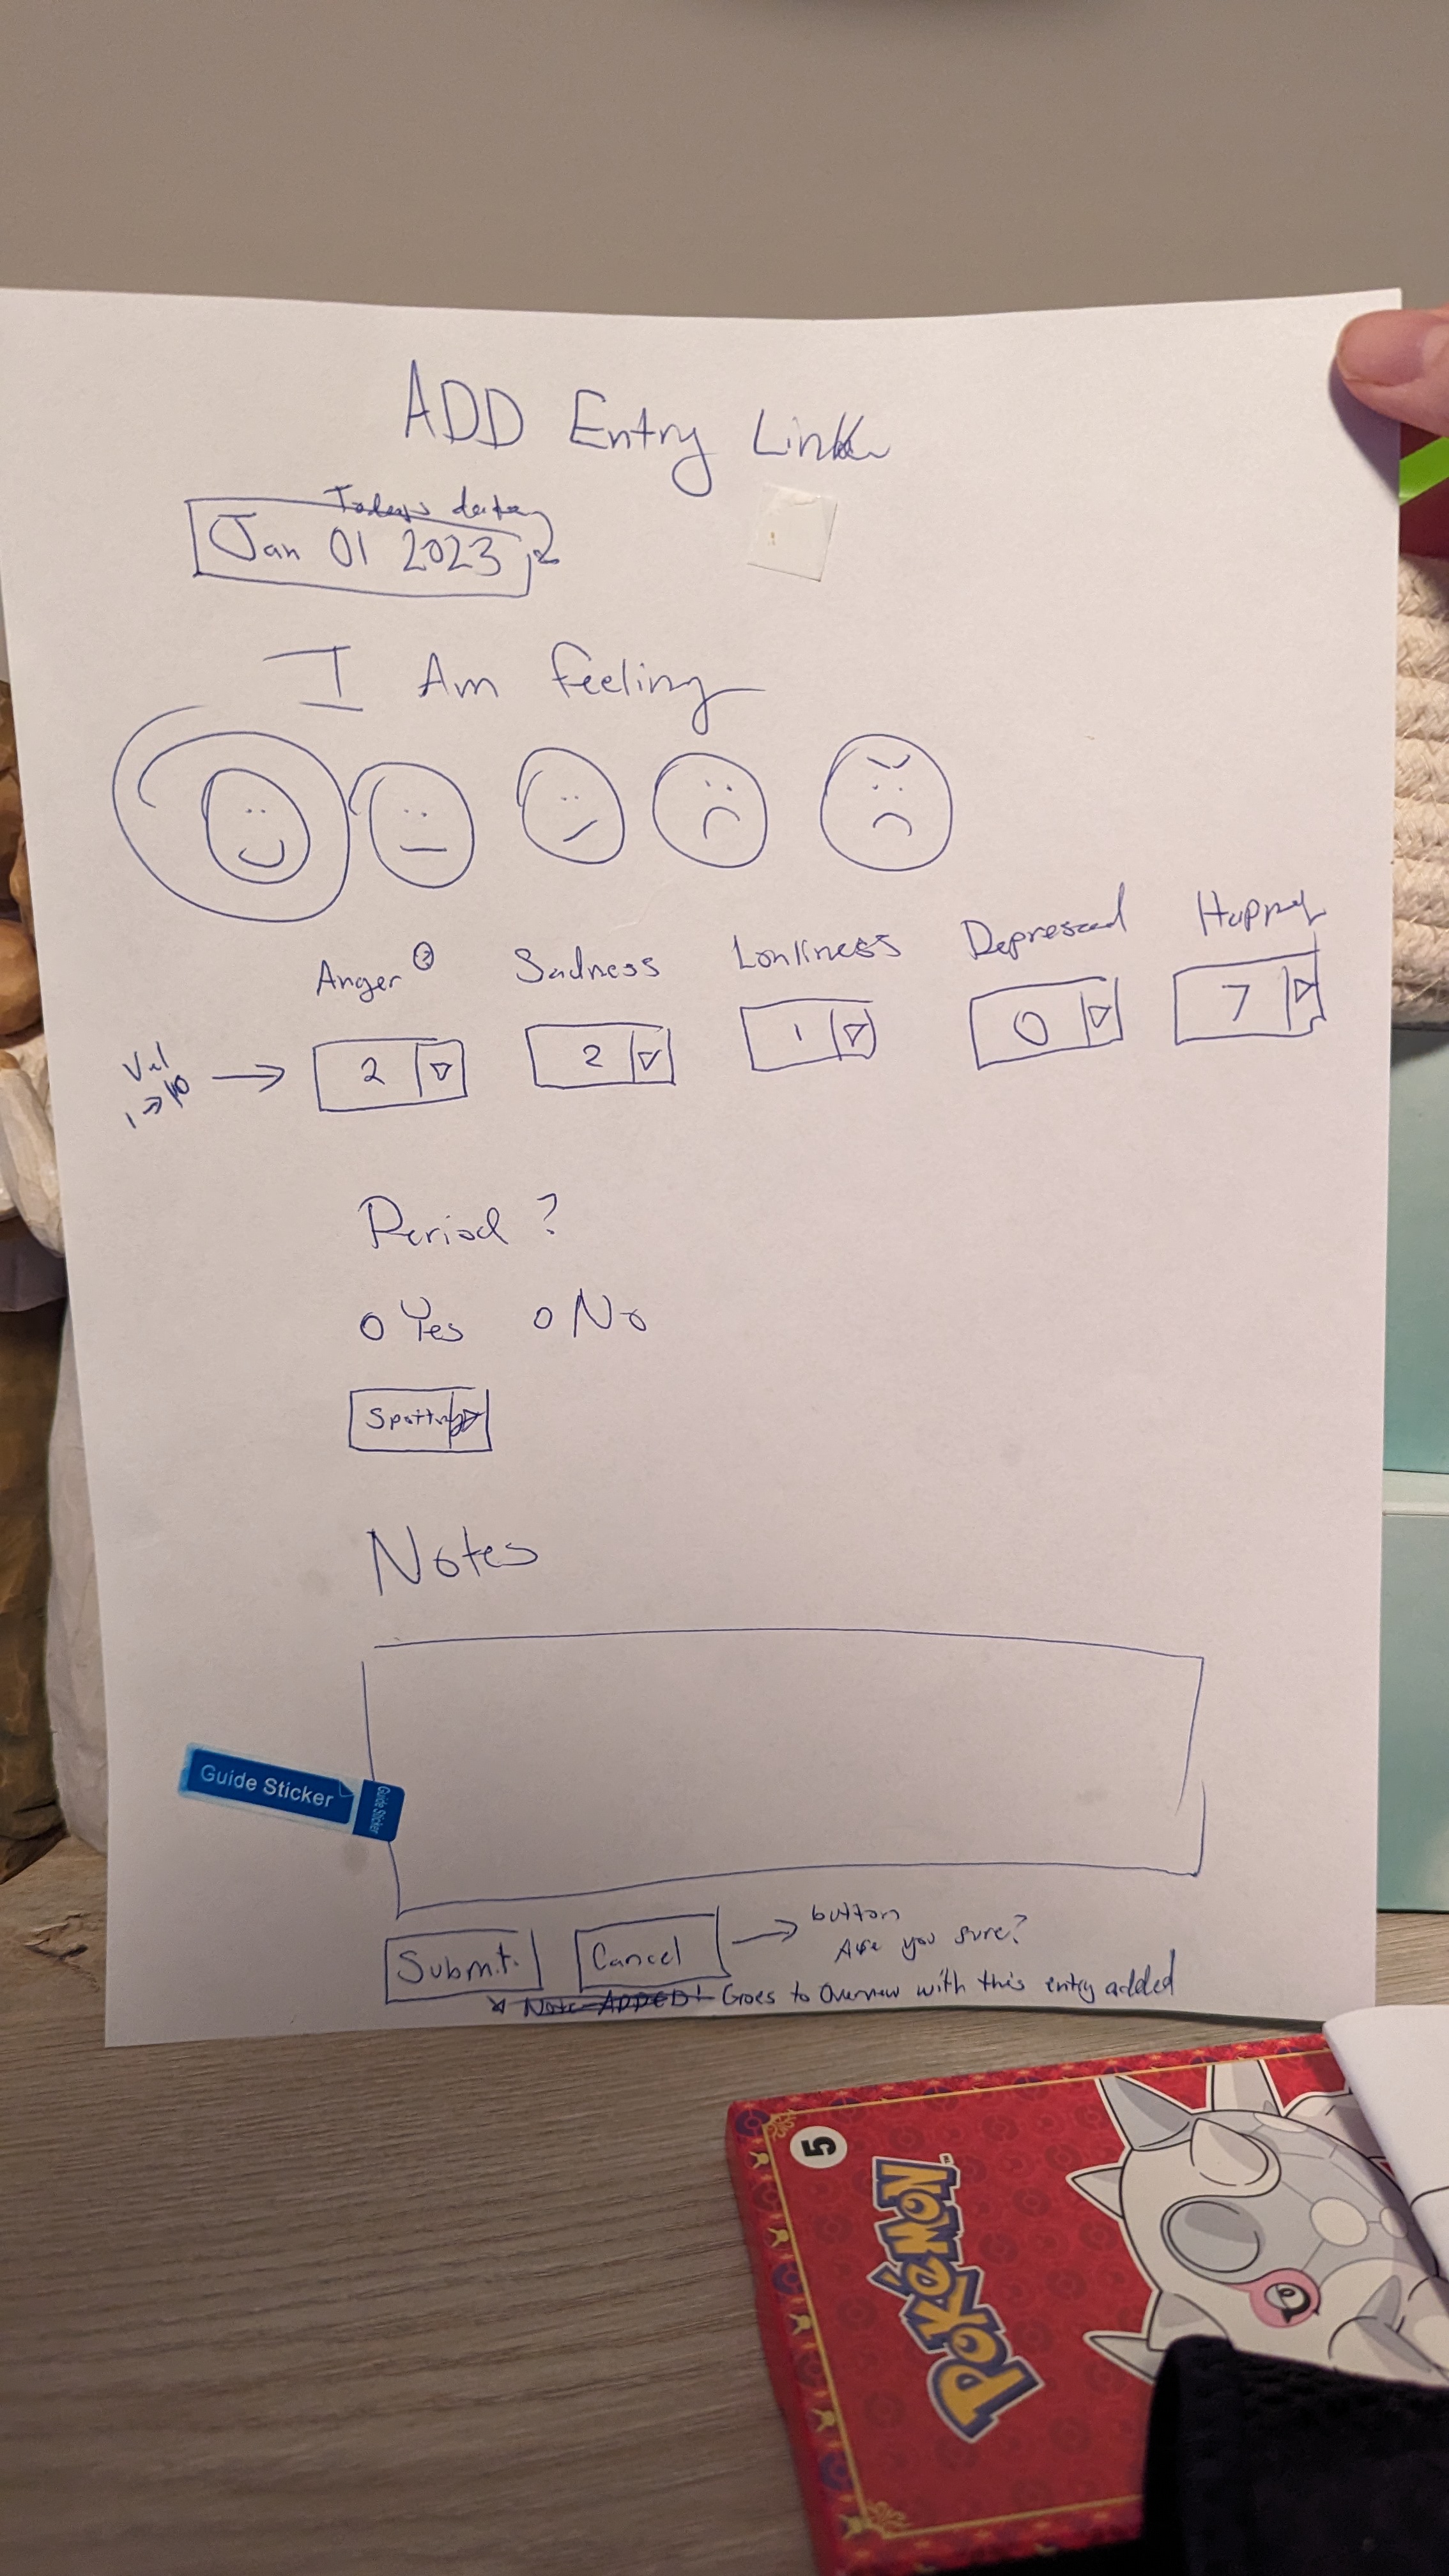 ADD Entry Link
Todays date
Jan 01 2023
I Am feeling
Anger ? Sadness Lonliness Depressed Happy
Val
1 → 10
2 2 1 0 7
Period ?
Yes No
Spotting
Notes
Guide Sticker
Guide Sticker
Submit Cancel
button
Are you sure?
Note ADDED! Goes to Overview with this entry added
5
POKéMON